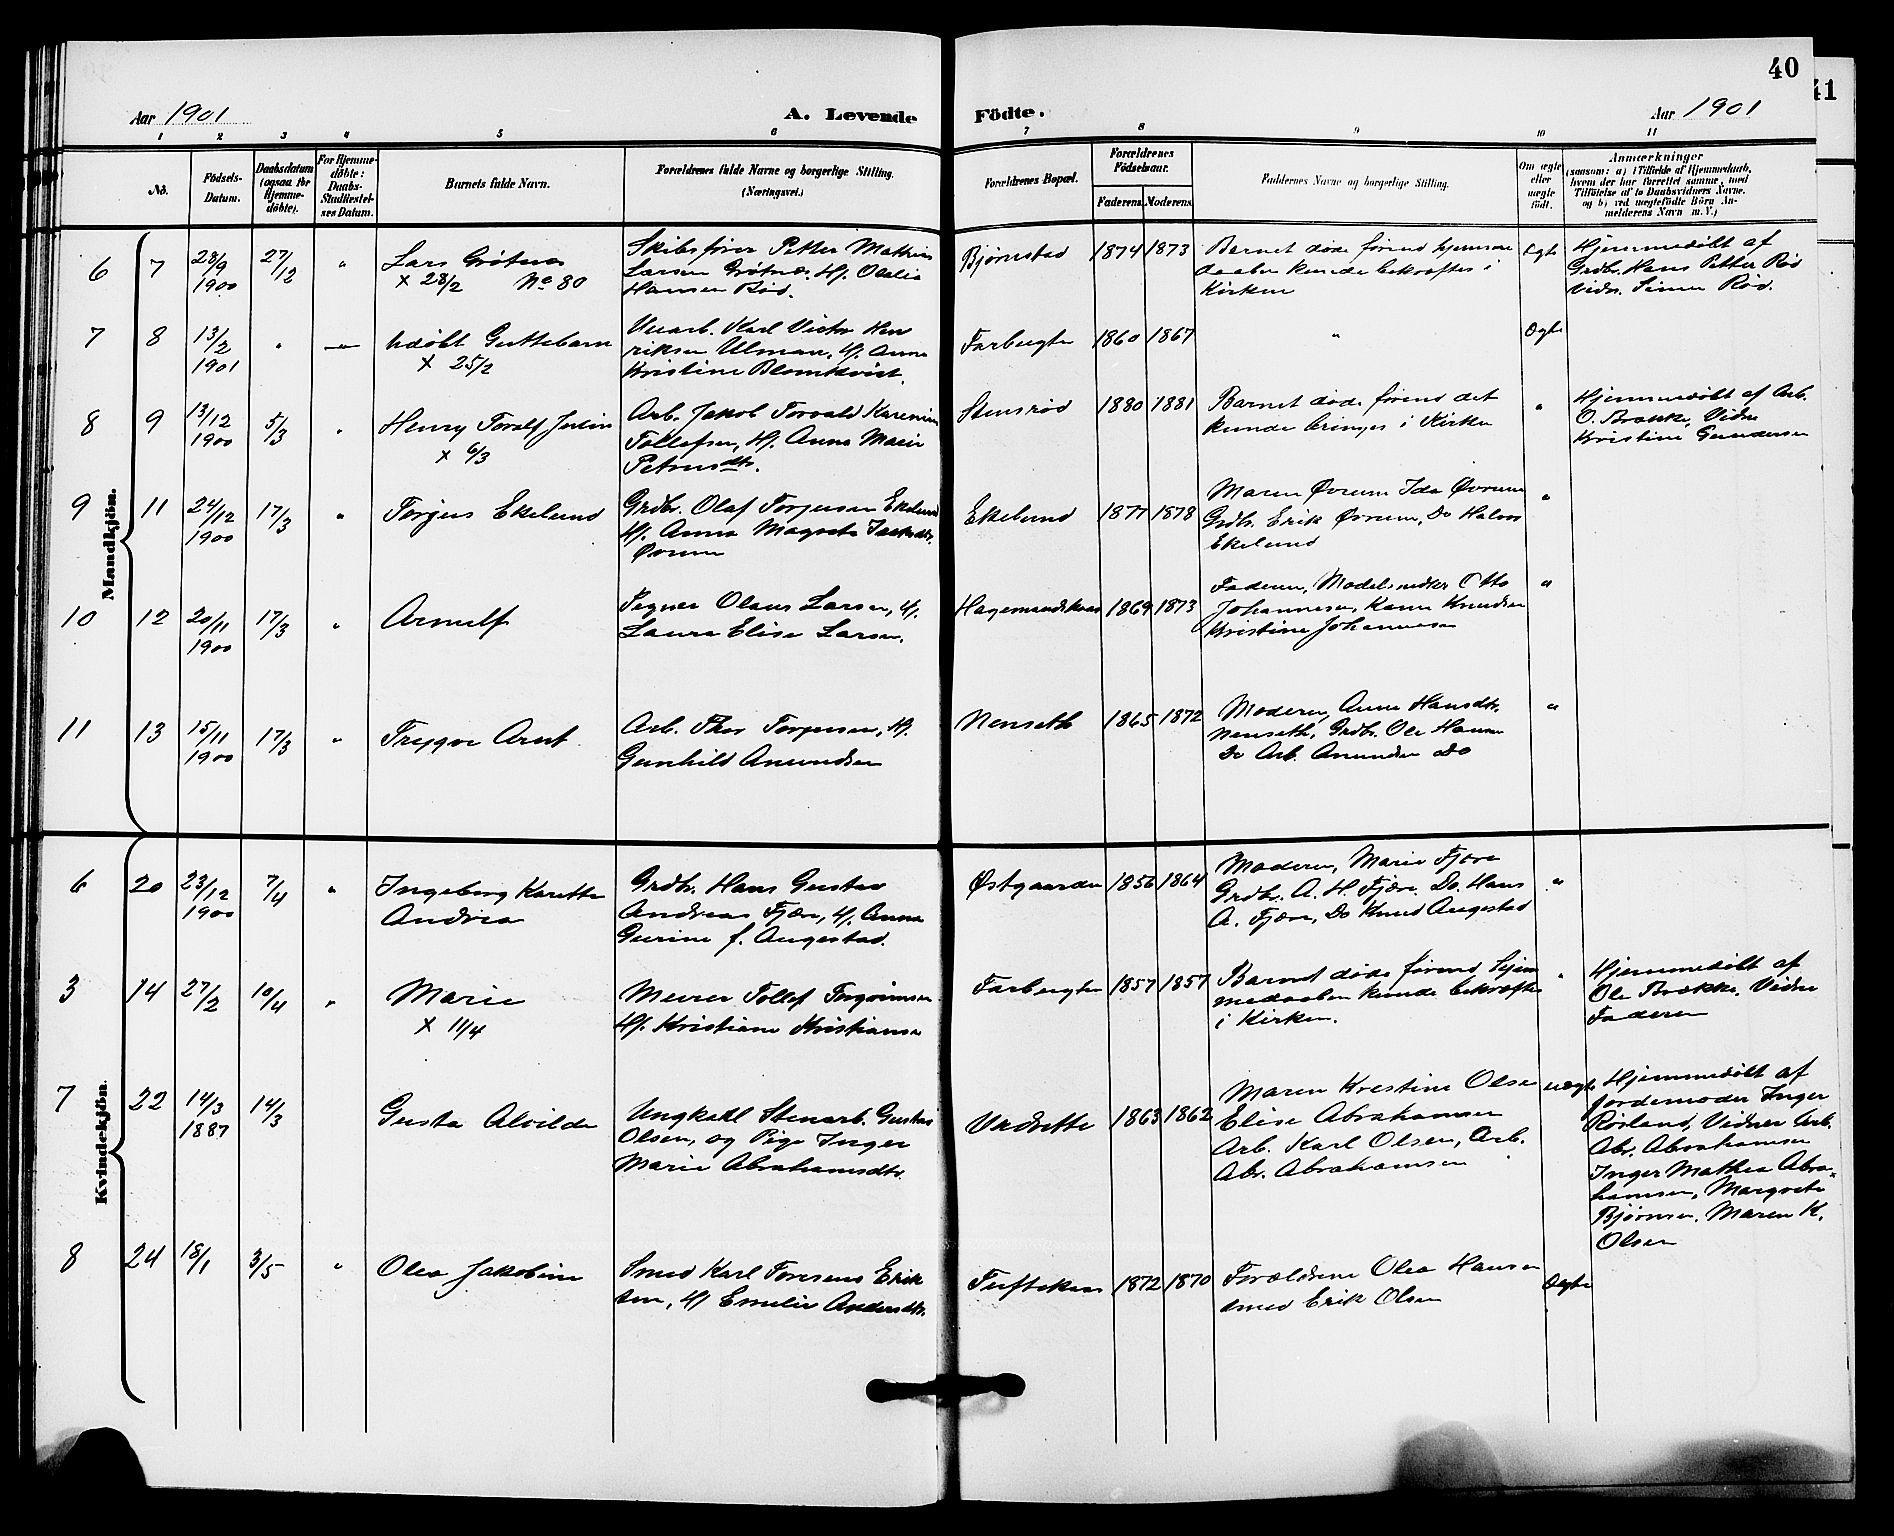 40
41
Aar 1901
A. Levende
Födte.
Aar 1901
1 2 3 4 5 6 7 8 9 10 11
No.
Födsels-
Datum.
Daabsdatum
(ogsaa for
Hjemme-
döbte).
For Hjemme-
döbte:
Daabs-
Stadfæstel-
ses Datum.
Barnets fulde Navn.
Forældrenes fulde Navne og borgerlige Stilling.
(Næringsvei.)
Forældrenes Bopæl.
Forældrenes
Födselsaar.
Faderens. Moderens.
Faddernes Navne og borgerlige Stilling.
Om ægte
eller
uægte
födt.
Anmærkninger
(saasom: a) i Tilfælde af Hjemmedaab,
hvem der har forrettet samme, med
Tilföielse af to Daabsvidners Navne,
og b) ved uægtefödte Börn An-
melderens Navn m. V.)
Mandkjön.
6 7 28/9 1900 27/12 "
Lars Grøtnes
x 28/2 No 80
Skibsfører Petter Mathias
Larsen Grøtnes, H/. Olalia
Hansen Rød.
Bjørnstad 1874 1873
Barnet døde førend hjemme
daaben kunde bekræftes i
Kirken
Ægte
Hjemmedøbt af
Grdbr. Hans Petter Rød
Vidn. Simen Rød.
7 8 13/2 1901 " "
Udøbt Guttebarn
x 25/2
Karl Victor Hen
riksen Ulman, H/. Anna
Kristine Blomkvist.
Farbergte 1860 1867 " Ægte
8 9 13/12 1900 5/3 "
Henry Toralf Justin
x 6/3
Arb. Jakob Torvald Karenius
Tollefsen, H/. Anna Marie
Petersdtr.
Stensrød 1880 1881
Barnet døde førend det
kunde bringes i Kirken
"
Hjemmedøbt af Arb.
O. Brække, Vidne
Kristine Gundersen
9 11 24/12 1900 17/3 "
Torjus Ekelund
Grdbr. Olaf Torjussen Ekelund
H/. Anna Magrete Isaksdtr.
Øvrum
Ekelund 1877 1878
Maren Øvrum Ida Øvrum
Grdb. Erik Øvrum, Do Halvor
Ekelund
"
10 12 20/11 1900 17/3 "
Arnulf
Olaus Larsen, H/.
Laura Elise Larsen.
1869 1873
Faderen, Modelsnedker Otto
Johannesen, Karen Knudsen
Kristine Johannesen
"
11 13 15/11 1900 17/3 "
Trygve Arnt
Arb. Thor Torjussen, H/.
Gunhild Amundsen
Nenseth 1865 1872
Moderen, Anne Hansdtr.
Nenseth, Grdbr. Ole Hansen
Do Arb. Amundsen Do
"
Kvindekjön.
6 20 23/12 1900 7/4 "
Ingeborg Karette
Andrea
Grdbr. Hans Gustav
Andreas Fjære, H/. Anna
Gurine f. Augestad.
Østgaarden 1856 1864
Moderen, Marie Fjære
Grdbr. A. H. Fjære. Do. Hans
A. Fjære, Do Knud Augestad
"
3 14 27/2 10/4 "
Marie
x 11/4
Murer Tollef Torgrimsen
H/. Kristiane Kristiansen
Farbergte 1857 1857
Barnet døde førend hjem
medaaben kunde bekræftes
i Kirken.
"
Hjemmedøbt af
Ole Brække, Vidne
Faderen
7 22 14/3 1887 14/3
Gusta Alvilde
Ungkarl Stenarb. Gustav
Olsen, og Pige Inger
Marie Abrahamsdtr.
1863 1862
Maren Kristine Olsen
Elise Abrahamsen
Arb. Karl Olsen, Arb.
Abr. Abrahamsen
uægte
Hjemmedøbt af
Jordemoder Inger
Røsland, Vidner Arb.
Abr. Abrahamsen
Inger Mathea Abra-
hamsen, Margrete
Bjørnsen. Maren K.
Olsen
8 24 18/1 3/5 "
Olea Jakobine
Smed Karl Toresens Erik
sen, H/ Emilie Andersdtr.
Tuftekas 1872 1870
Forældrene Olea Hansen
Smed Erik Olsen
Ægte